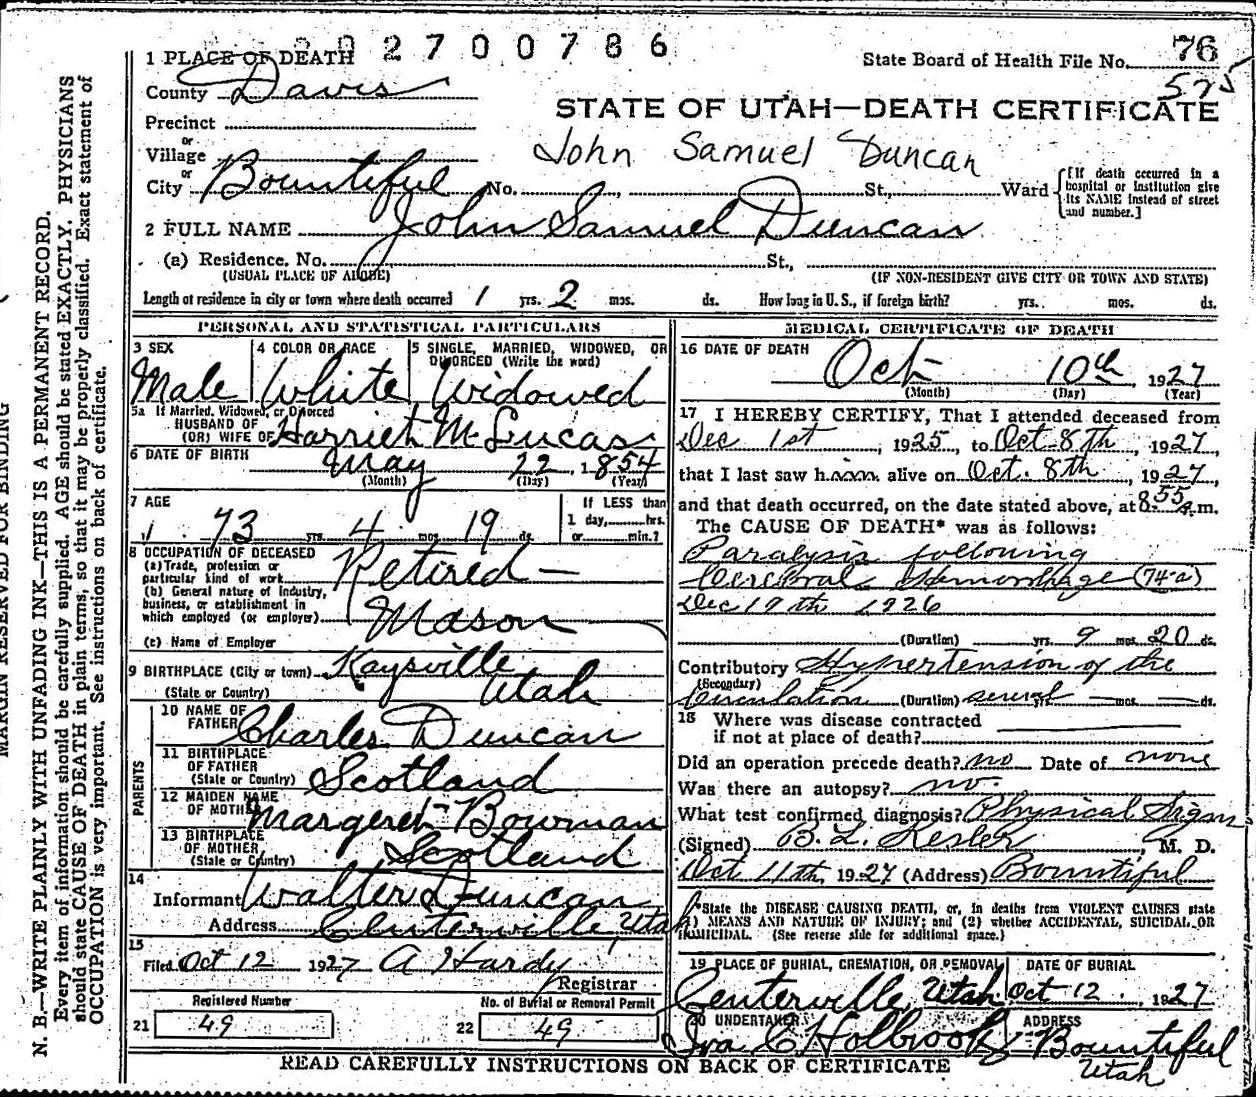 2700786
1 PLACE OF DEATH
State Board of Health File No. 76
525
County Davis
STATE OF UTAH—DEATH CERTIFICATE
Precinct
or
Village
John Samuel Duncan
or
City Bountiful No. , St., Ward
[If death occurred in a hospital or institution give its NAME instead of street and number.]
2 FULL NAME John Samuel Duncan
(a) Residence. No. St.,
(USUAL PLACE OF ABODE) (IF NON-RESIDENT GIVE CITY OR TOWN AND STATE)
Length of residence in city or town where death occurred 1 yrs. 2 mos. ds. How long in U. S., if foreign birth? yrs. mos. ds.
PERSONAL AND STATISTICAL PARTICULARS
3 SEX 4 COLOR OR RACE 5 SINGLE, MARRIED, WIDOWED, OR DIVORCED (Write the word)
Male White Widowed
5a If Married, Widowed, or Divorced
HUSBAND OF
(OR) WIFE OF Harriet M Lucas
6 DATE OF BIRTH May 22, 1854
(Month) (Day) (Year)
7 AGE If LESS than
73 yrs. 4 mos. 19 ds. 1 day, hrs.
or min.?
8 OCCUPATION OF DECEASED
(a) Trade, profession or
particular kind of work Retired—
(b) General nature of Industry,
business, or establishment in
which employed (or employer) Mason
(c) Name of Employer
9 BIRTHPLACE (City or town) Kaysville
(State or Country) Utah
PARENTS
10 NAME OF
FATHER Charles Duncan
11 BIRTHPLACE
OF FATHER
(State or Country) Scotland
12 MAIDEN NAME
OF MOTHER Margeret Bowman
13 BIRTHPLACE
OF MOTHER
(State or Country) Scotland
14
Informant Walter Duncan
Address Centerville, Utah
15
Filed Oct 12 1927 A Hardy
Registrar
Registered Number No. of Burial or Removal Permit
21 49 22 49
MEDICAL CERTIFICATE OF DEATH
16 DATE OF DEATH Oct 10th, 1927
(Month) (Day) (Year)
17 I HEREBY CERTIFY, That I attended deceased from
Dec 1st, 1925, to Oct 8th, 1927
that I last saw him alive on Oct. 8th, 1927,
and that death occurred, on the date stated above, at 8:55 a.m.
The CAUSE OF DEATH* was as follows:
Paralysis following
Cerebral Hemorrhage (74-a)
Dec 19th 1926
(Duration) yrs. 9 mos. 20 ds.
Contributory Hypertension of the
(Secondary)
Circulation (Duration) several yrs. — mos. — ds.
18 Where was disease contracted
if not at place of death?
Did an operation precede death? no Date of none
Was there an autopsy? no.
What test confirmed diagnosis? Physical Signs
(Signed) B. L. Kesler, M. D.
Oct 11th, 1927 (Address) Bountiful
*State the DISEASE CAUSING DEATH, or, in deaths from VIOLENT CAUSES state
(1) MEANS AND NATURE OF INJURY; and (2) whether ACCIDENTAL, SUICIDAL OR
HOMICIDAL. (See reverse side for additional space.)
19 PLACE OF BURIAL, CREMATION, OR REMOVAL DATE OF BURIAL
Centerville, Utah Oct 12. 1927
20 UNDERTAKER ADDRESS
Ira C Holbrook Bountiful
Utah
READ CAREFULLY INSTRUCTIONS ON BACK OF CERTIFICATE
MARGIN RESERVED FOR BINDING
N. B.—WRITE PLAINLY WITH UNFADING INK—THIS IS A PERMANENT RECORD.
Every item of information should be carefully supplied. AGE should be stated EXACTLY. PHYSICIANS
should state CAUSE OF DEATH in plain terms, so that it may be properly classified. Exact statement of
OCCUPATION is very important. See instructions on back of certificate.